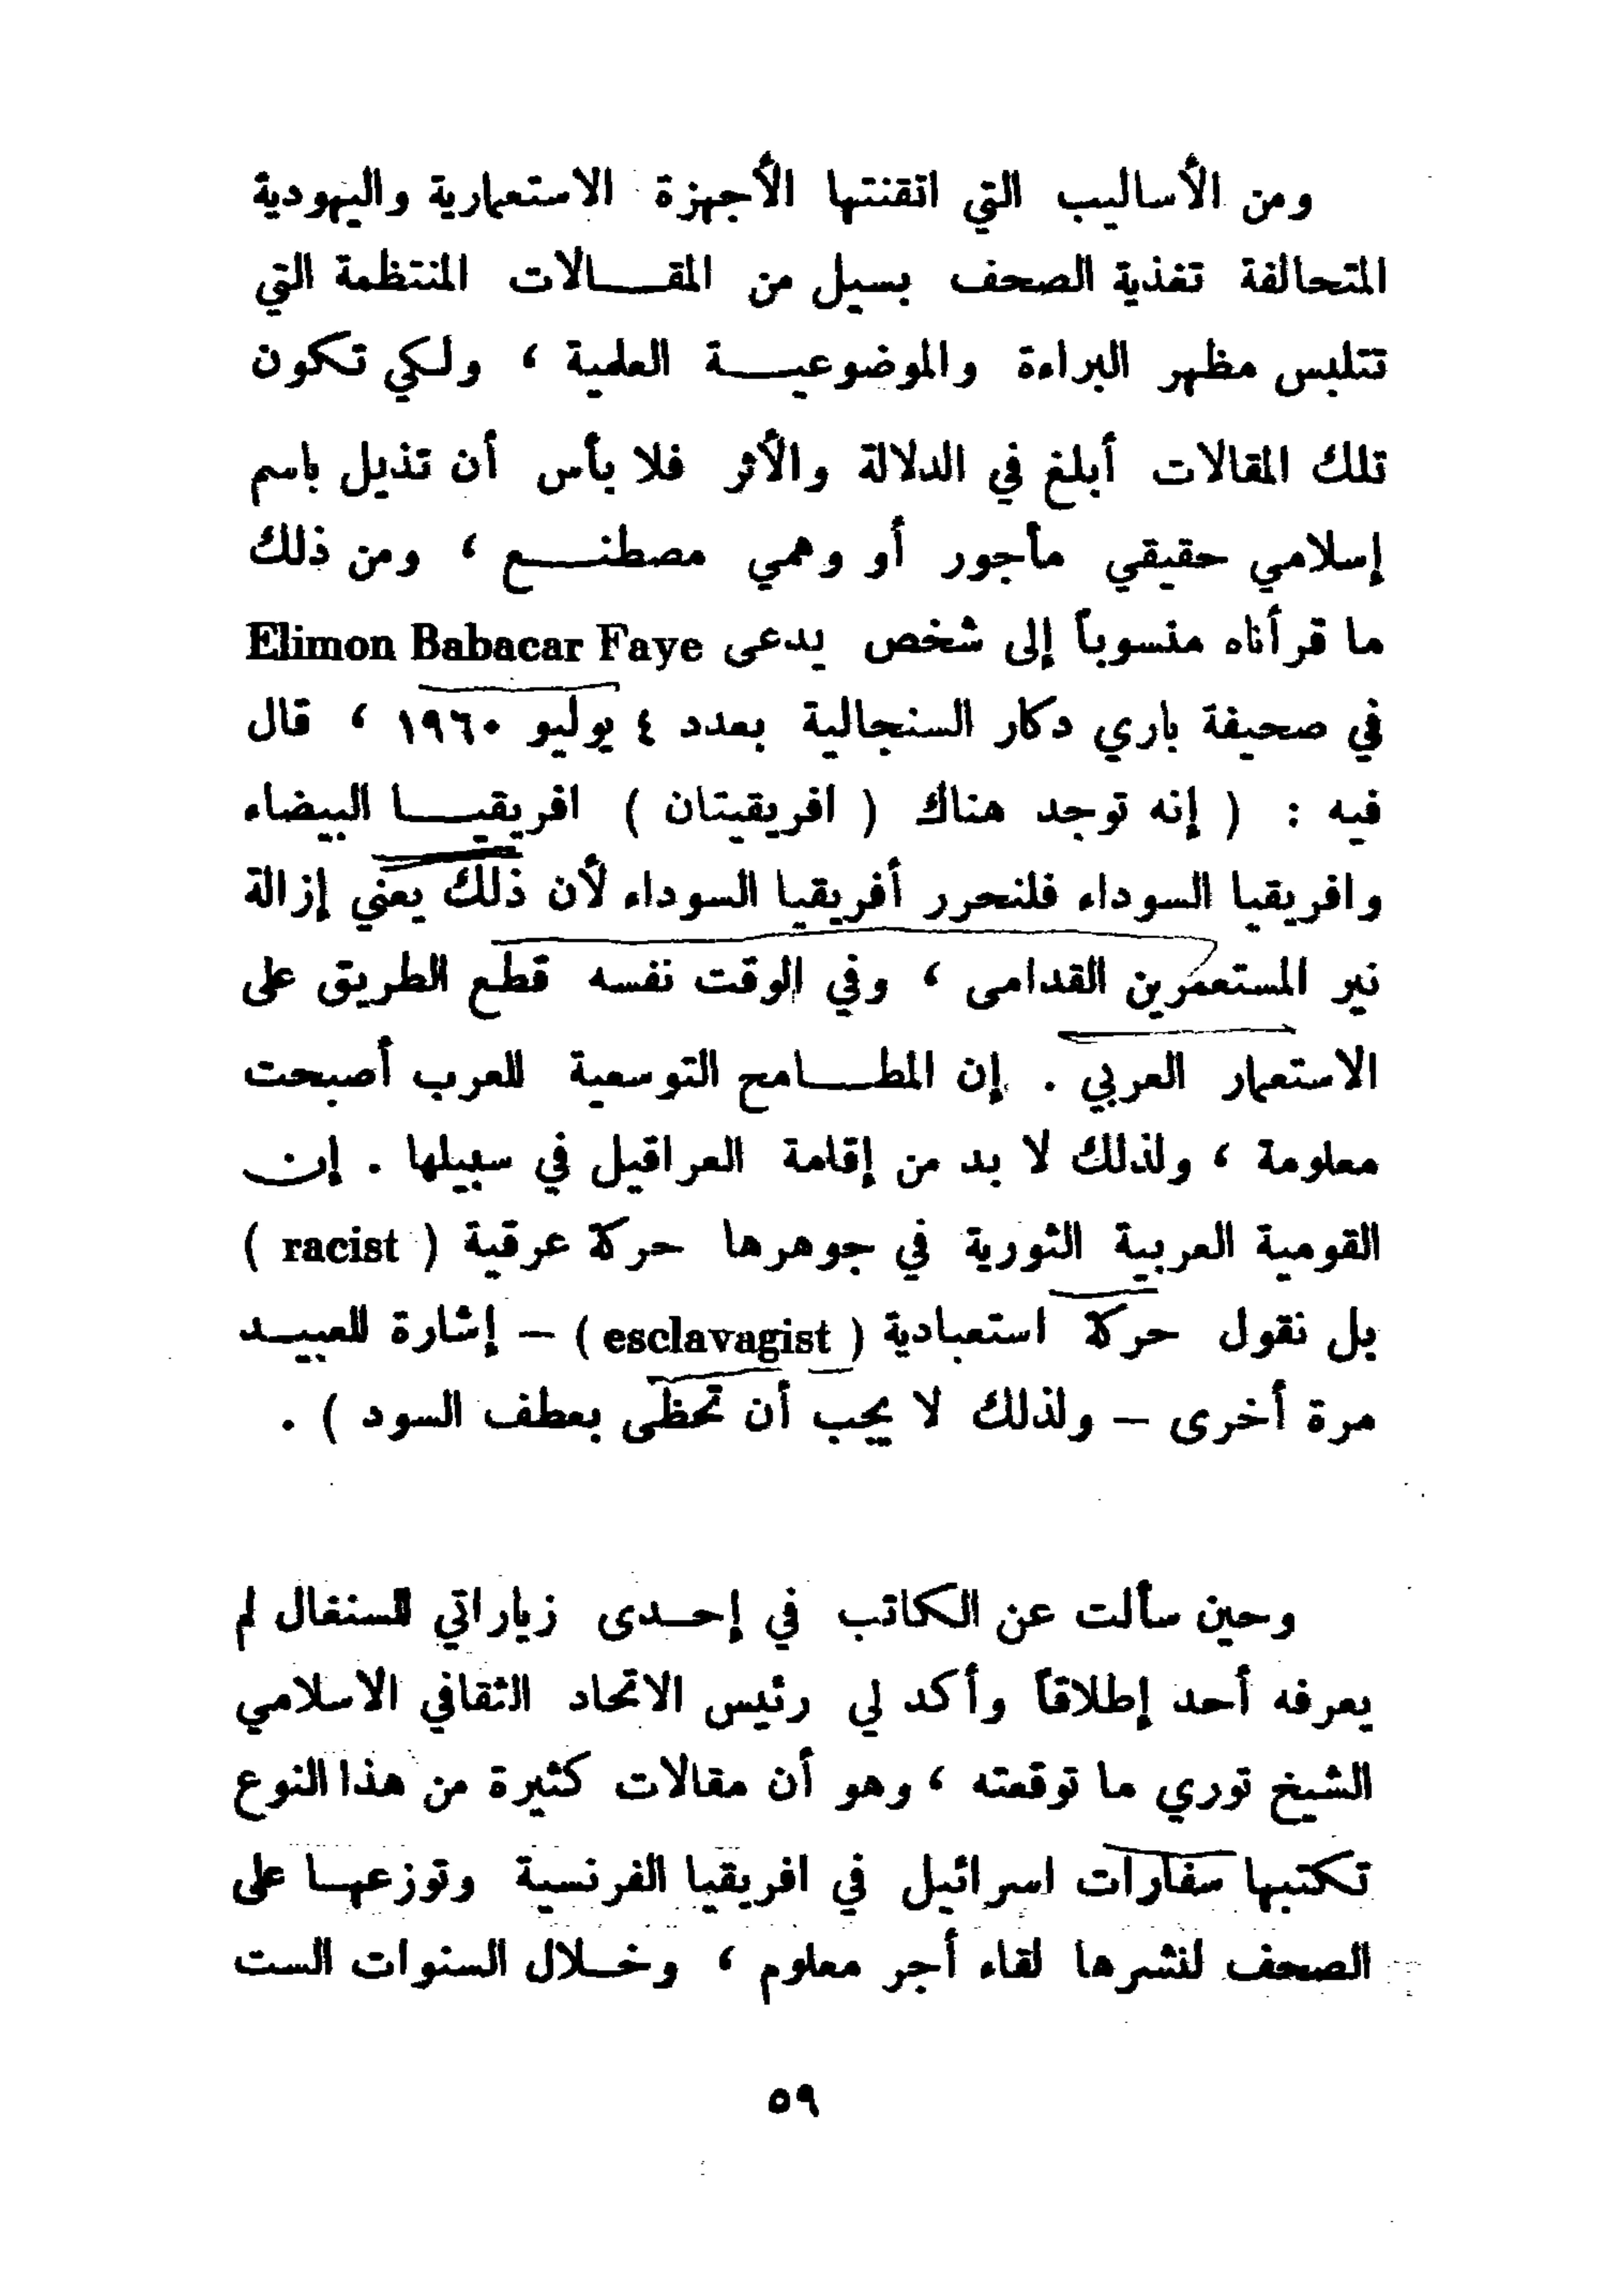 ومن الأساليب التي اتقنتها الأجهزة الاستعمارية واليهودية
المتحالفة تغذية الصحف بسيل من المقالات المنتظمة التي
تتلبس مظهر البراءة والموضوعية العلمية ، ولكي تكون
تلك المقالات أبلغ في الدلالة والأثر فلا بأس أن تذيل باسم
إسلامي حقيقي مأجور أو وهمي مصطنع ، ومن ذلك
ما قرأناه منسوباً إلى شخص يدعى Elimon Babacar Faye
في صحيفة باري دكار السنجالية بعدد ٤ يوليو ١٩٦٠ ، قال
فيه : ( إنه توجد هناك ( افريقيتان ) افريقيا البيضاء
وافريقيا السوداء فلنحرر أفريقيا السوداء لأن ذلك يعني إزالة
نير المستعمرين القدامى ، وفي الوقت نفسه قطع الطريق على
الاستعمار العربي . إن المطامح التوسعية للعرب أصبحت
معلومة ، ولذلك لا بد من إقامة العراقيل في سبيلها . إن
القومية العربية الثورية في جوهرها حركة عرقية ( racist )
بل نقول حركة استعبادية ( esclavagist ) – إشارة للعبيد
مرة أخرى – ولذلك لا يجب أن تحظى بعطف السود ) .
وحين سألت عن الكاتب في إحدى زياراتي للسنغال لم
يعرفه أحد إطلاقاً وأكد لي رئيس الاتحاد الثقافي الاسلامي
الشيخ توري ما توقعته ، وهو أن مقالات كثيرة من هذا النوع
تكتبها سفارات اسرائيل في افريقيا الفرنسية وتوزعها على
الصحف لنشرها لقاء أجر معلوم ، وخلال السنوات الست
٥٩